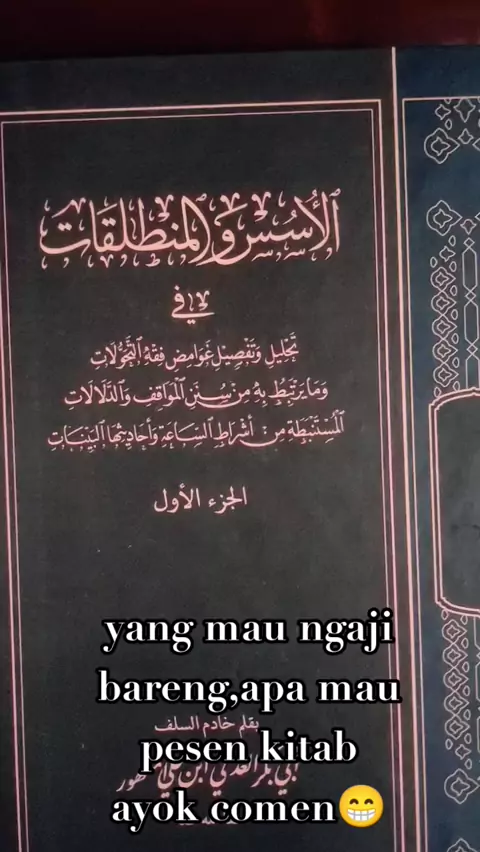 الأسس والمنطلقات
في
تحليل وتفصيل غوامض فقه التحولات
وما يرتبط به من سنن المواقف والدلالات
المستنبطة من: أشراط الساعة وأحاديثها البينات
الجزء الأول
yang mau ngaji
bareng,apa mau
بقلم خادم السلف
pesen kitab
أبي بكر العدني ابن علي
ayok comen😁